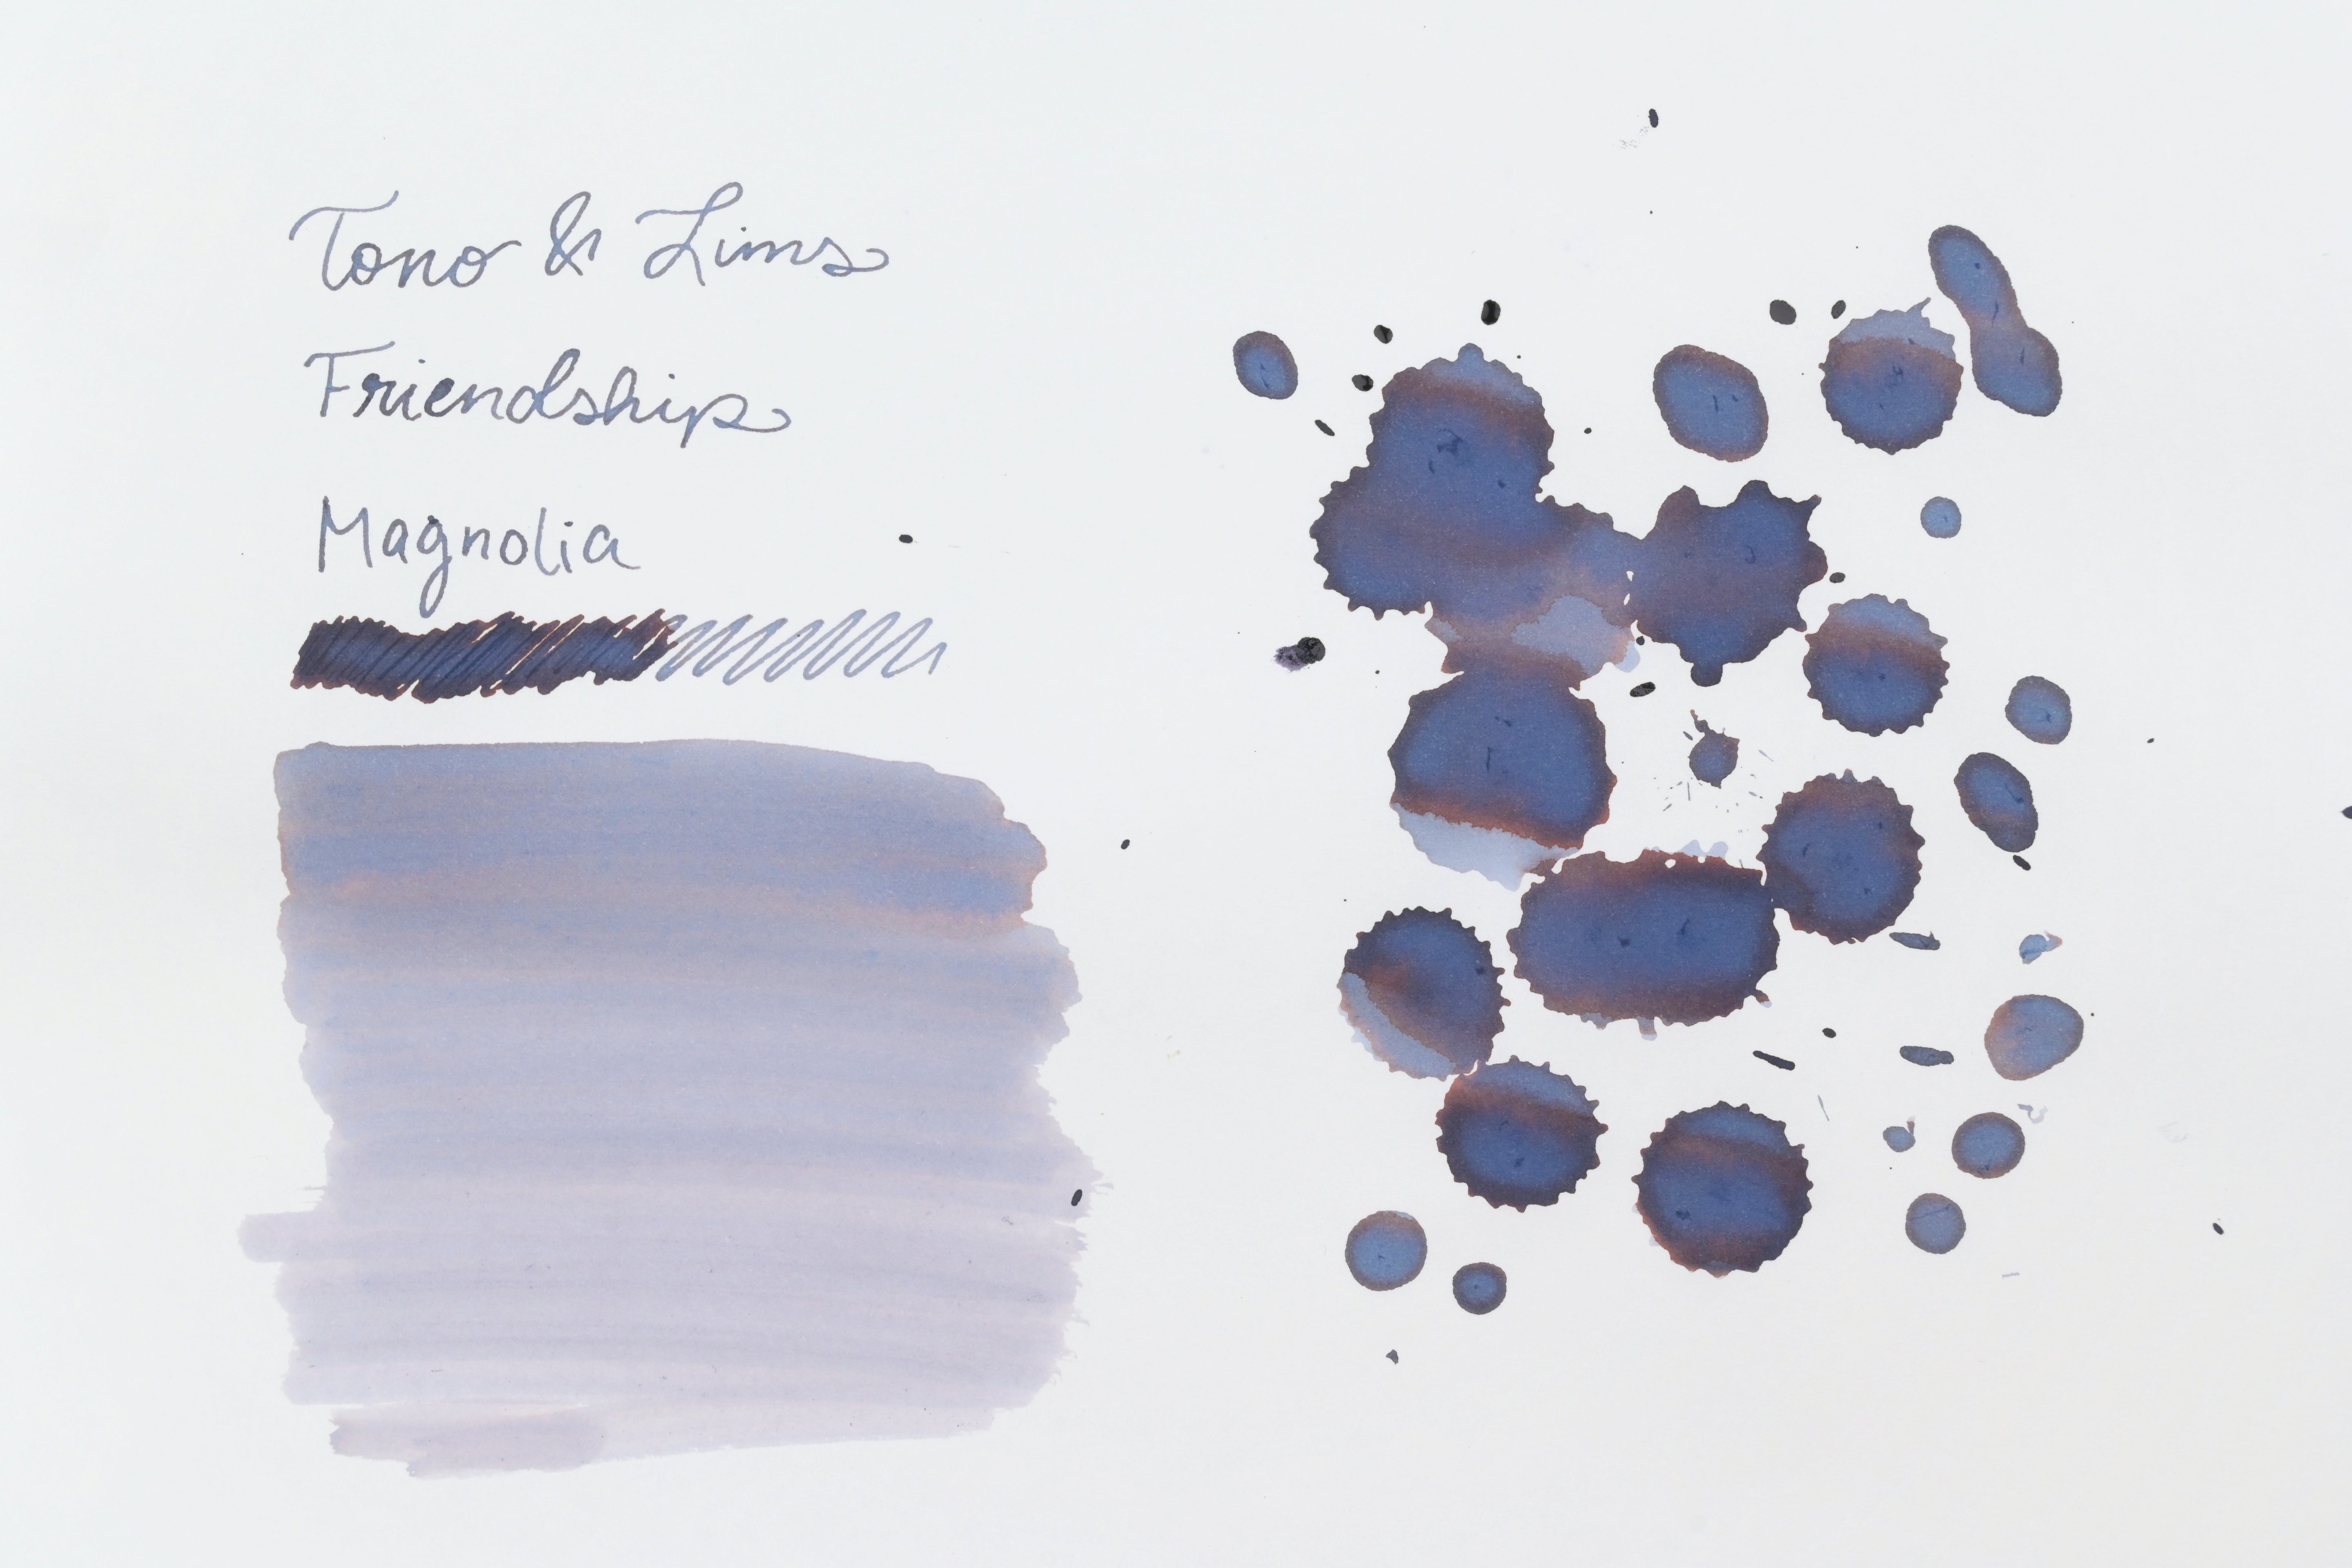 Tono & Lims
Friendship
Magnolia